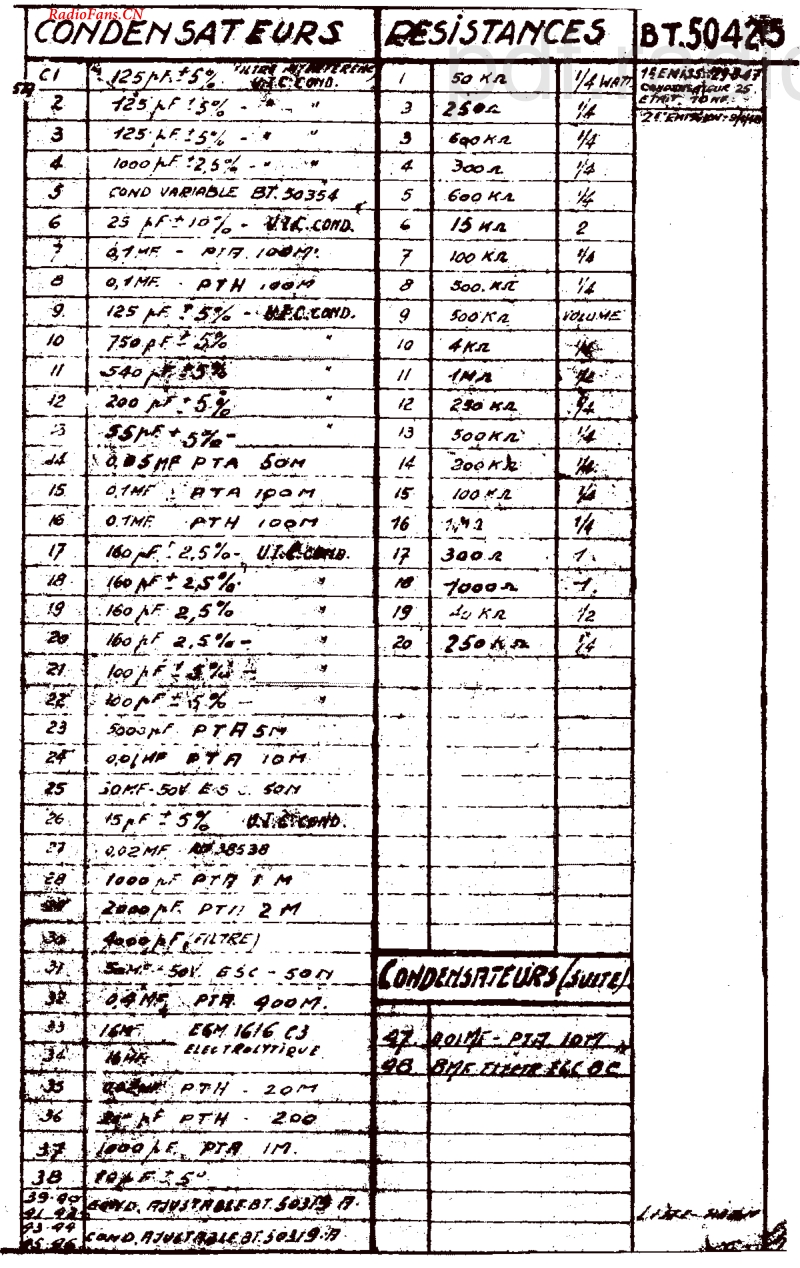 RadioFans.CN
CONDENSATEURS
C1 125 pF ± 5% FILTRE U.I.C. COND.
2 125 pF ± 5% - " "
3 125 pF ± 5% - " "
4 1000 pF ± 2,5% - " "
5 COND VARIABLE BT. 50354
6 25 pF ± 10% - U.I.C. COND.
7 0,1 MF - PTA 100M
8 0,1 MF - PTH 100M
9 125 pF ± 5% - U.I.C. COND.
10 750 pF ± 5% "
11 540 pF ± 5% "
12 200 pF ± 5% "
13 55 pF ± 5% - "
14 0,05 MF PTA 50M
15 0,1 MF PTA 100M
16 0,1 MF PTH 100M
17 160 pF ± 2,5% - U.I.C. COND.
18 160 pF ± 2,5% "
19 160 pF 2,5% "
20 160 pF 2,5% - "
21 100 pF ± 5% - "
22 100 pF ± 5% - "
23 5000 pF PTA 5M
24 0,01 MF PTA 10M
25 MF - 50V ESC 50M
26 15 pF ± 5% U.I.C. COND.
27 0,02 MF 38538
28 1000 pF PTA 1M
29 2000 pF PTA 2M
30 4000 pF (FILTRE)
31 50 MF - 50V. ESC - 50M
32 PTA 400M.
33 16 MF EGM 1616 C3
34 16 MF ELECTROLYTIQUE
35 PTH - 20M
36 pF PTH - 200
37 1000 pF PTA 1M.
38 pF ± 5%
39-40
41-42 COND. AJUSTABLE BT. 50319 A.
43-44
45-46 COND. AJUSTABLE BT. 50319-A
RESISTANCES
1 50 KΩ 1/4 WATT
3 250Ω 1/4
3 600 KΩ 1/4
4 300Ω 1/4
5 600 KΩ 1/4
6 15 KΩ 2
7 100 KΩ 1/4
8 500 KΩ 1/4
9 500 KΩ VOLUME
10 4 KΩ 1/4
11 1 MΩ 1/4
12 250 KΩ 1/4
13 500 KΩ 1/4
14 200 KΩ 1/4
15 100 KΩ 1/4
16 1 MΩ 1/4
17 300Ω 1
18 1000Ω 1
19 KΩ 1/2
20 250 KΩ 1/4
CONDENSATEURS (SUITE)
47 0,01 MF - PTA 10M
48 8MF
BT. 50425
CONDENSATEUR 25
ETAIT 10 MF.
2E EMISSION